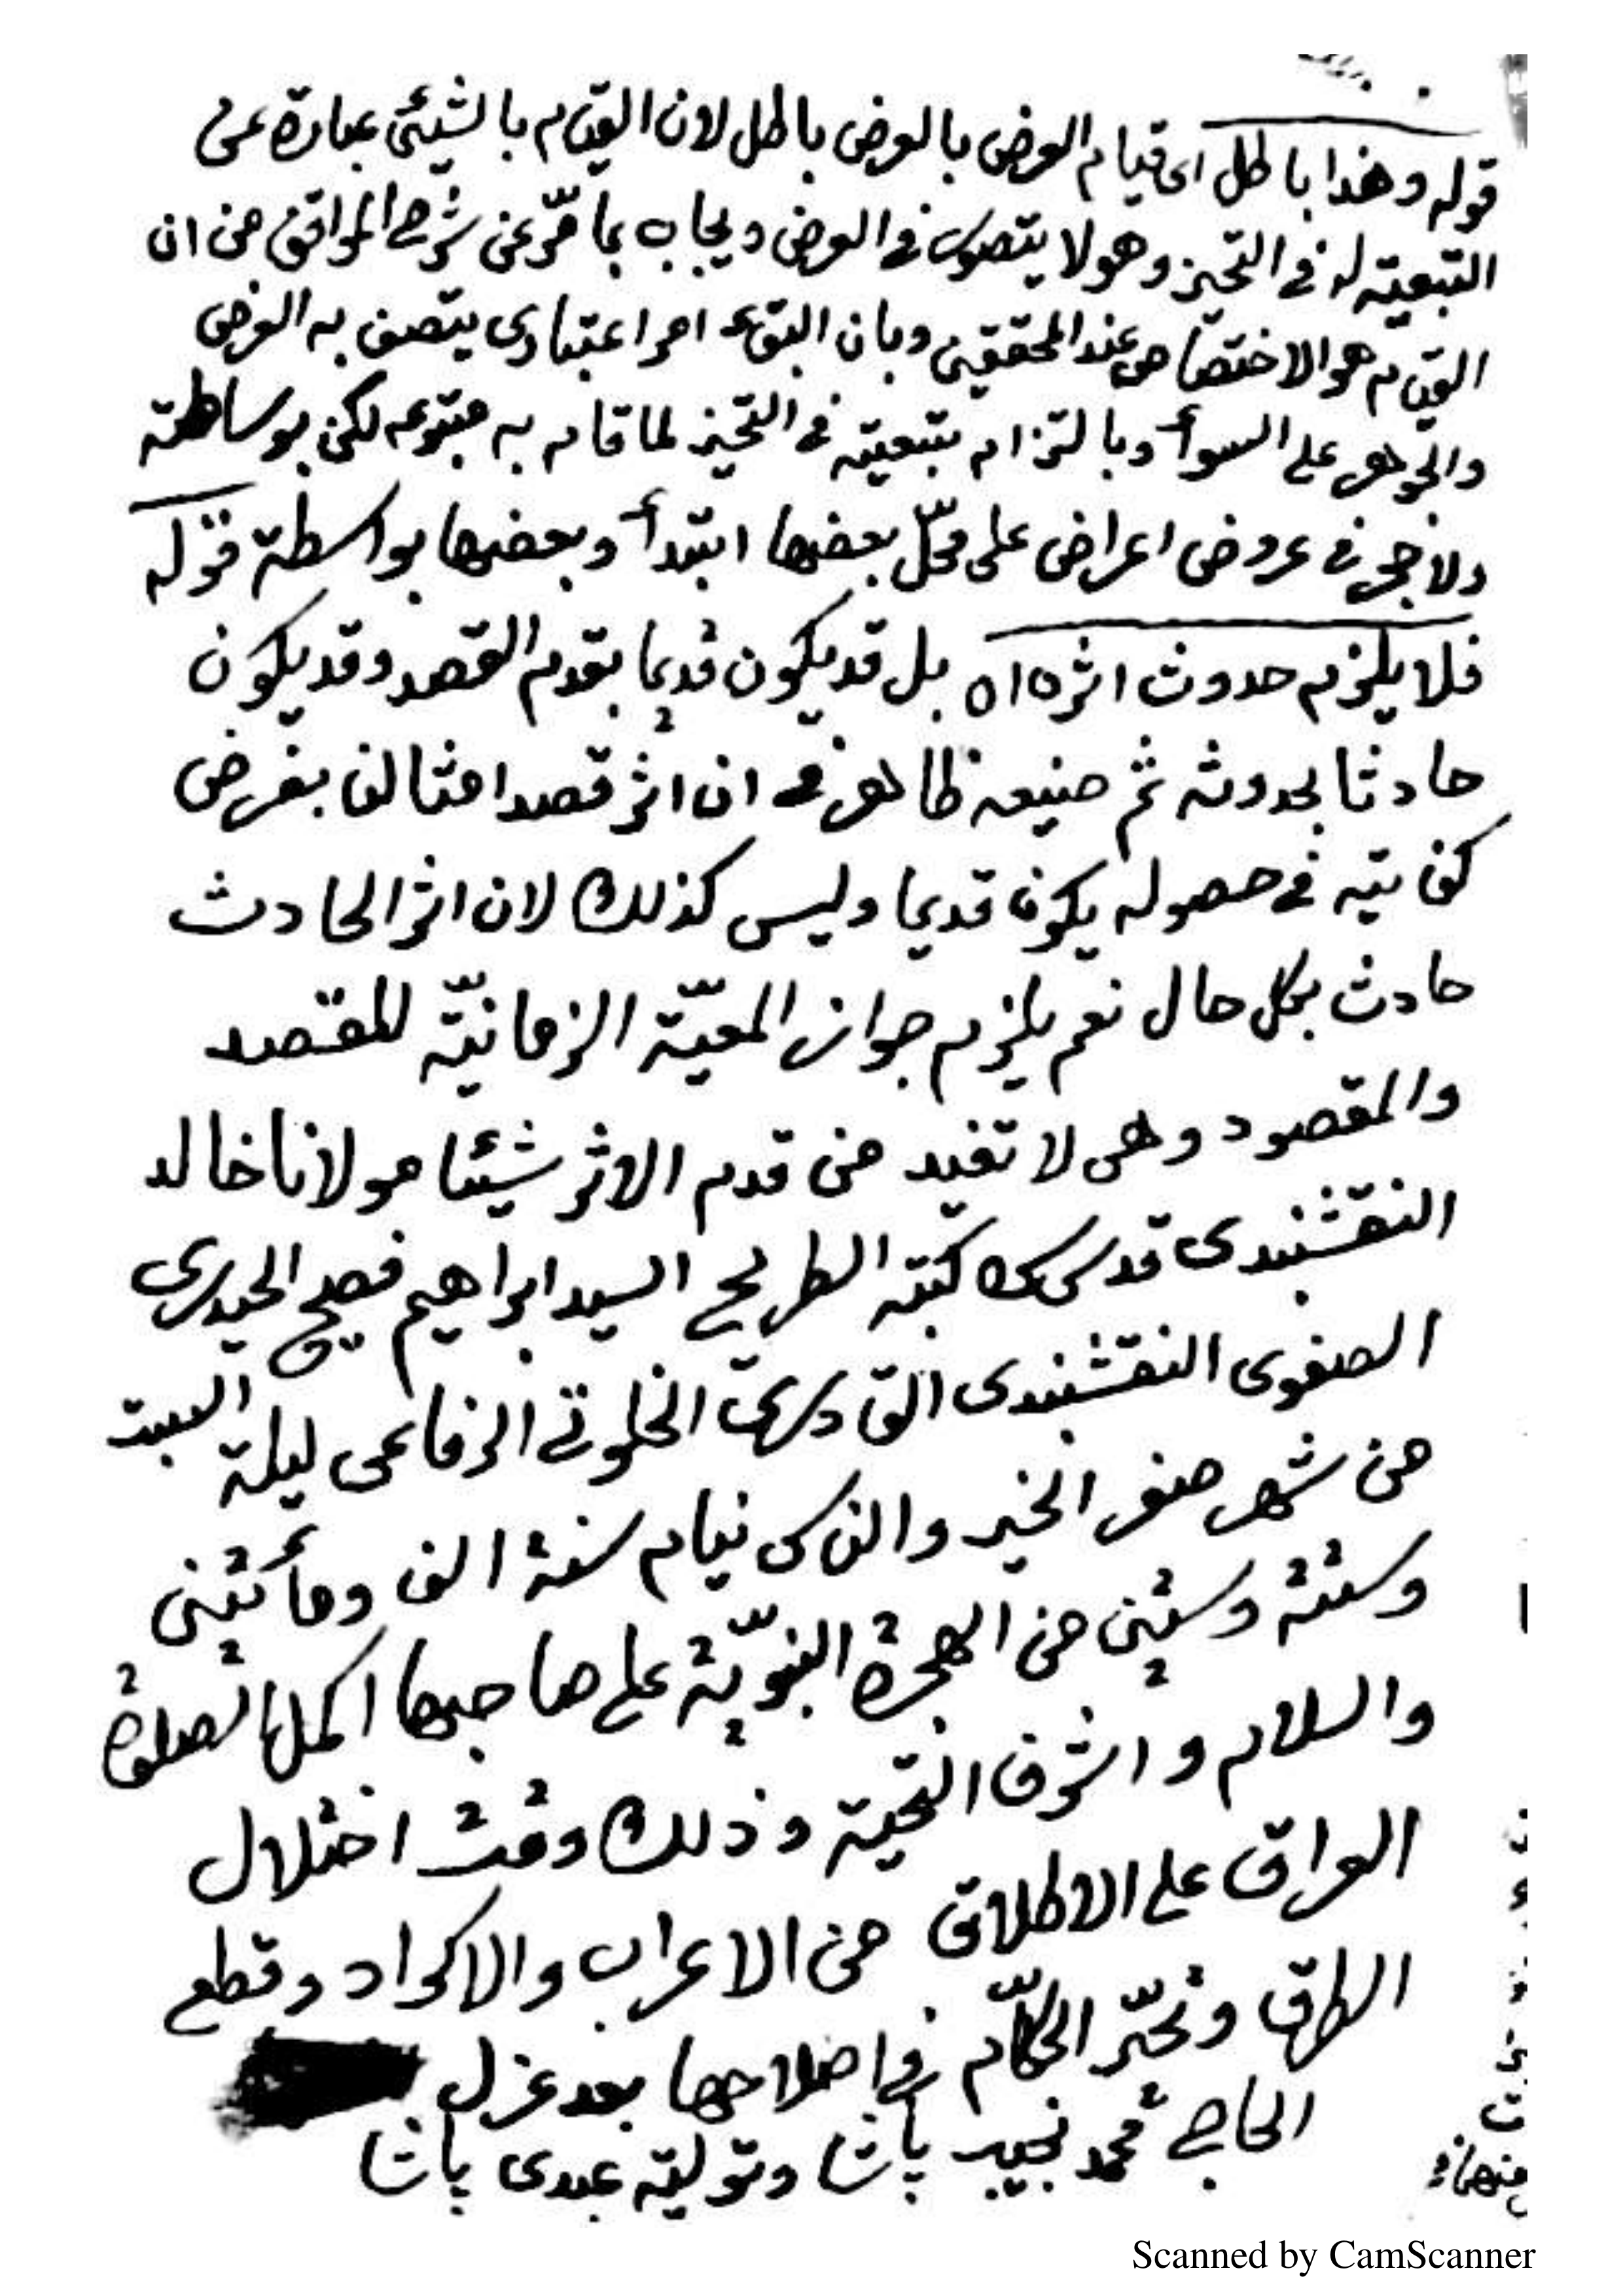 قوله وهذا باطل اى قيام العرض بالعرض باطل لان القيام بالشيئ عبارة عن
التبعية له فى التحيز وهو لا يتصور فى العرض ويجاب بما مرّ عن شرح المواقف من ان
القيام هو الاختصاص عند المحققين وبان البقاء امر اعتبارى يتصف به العرض
والجوهر على السوأ وبالتزام تبعيته فى التحيز لما قام به متبوعه لكن بوساطته
ولا حجر فى عروض اعراض على محلّ بعضها ابتدأ وبعضها بواسطة قوله
فلا يلزم حدوث اثره اه بل قد يكون قديما بقدم القصد وقد يكون
حادثا بحدوثه ثم صنيعه ظاهر فى ان اثر قصد امثالنا بفرض
كفايته فى حصوله يكون قديما وليس كذلك لان اثر الحادث
حادث بكل حال نعم يلزم جواز المعيّة الزمانيّة للقصد
والمقصود وهى لا تفيد من قدم الاثر شيئا مولانا خالد
النقشبندى قدس سره كتبه الطريح السيد ابراهيم فصيح الحيدرى
الصفوى النقشبندى القادرى الخلوتى الرفاعى ليلة السبت
من شهر صفر الخير والناس نيام سنة الف ومأتين
وستة وستين من الهجرة النبويّة على صاحبها اكمل الصلوة
والسلام واشرف التحية وذلك وقت اختلال
العراق على الاطلاق من الاعراب والاكراد وقطع
الطرق وتحيّر الحكّام فى اصلاحها بعد عزل
الحاجى محمد نجيب پاشا وتولية عبدى پاشا
Scanned by CamScanner